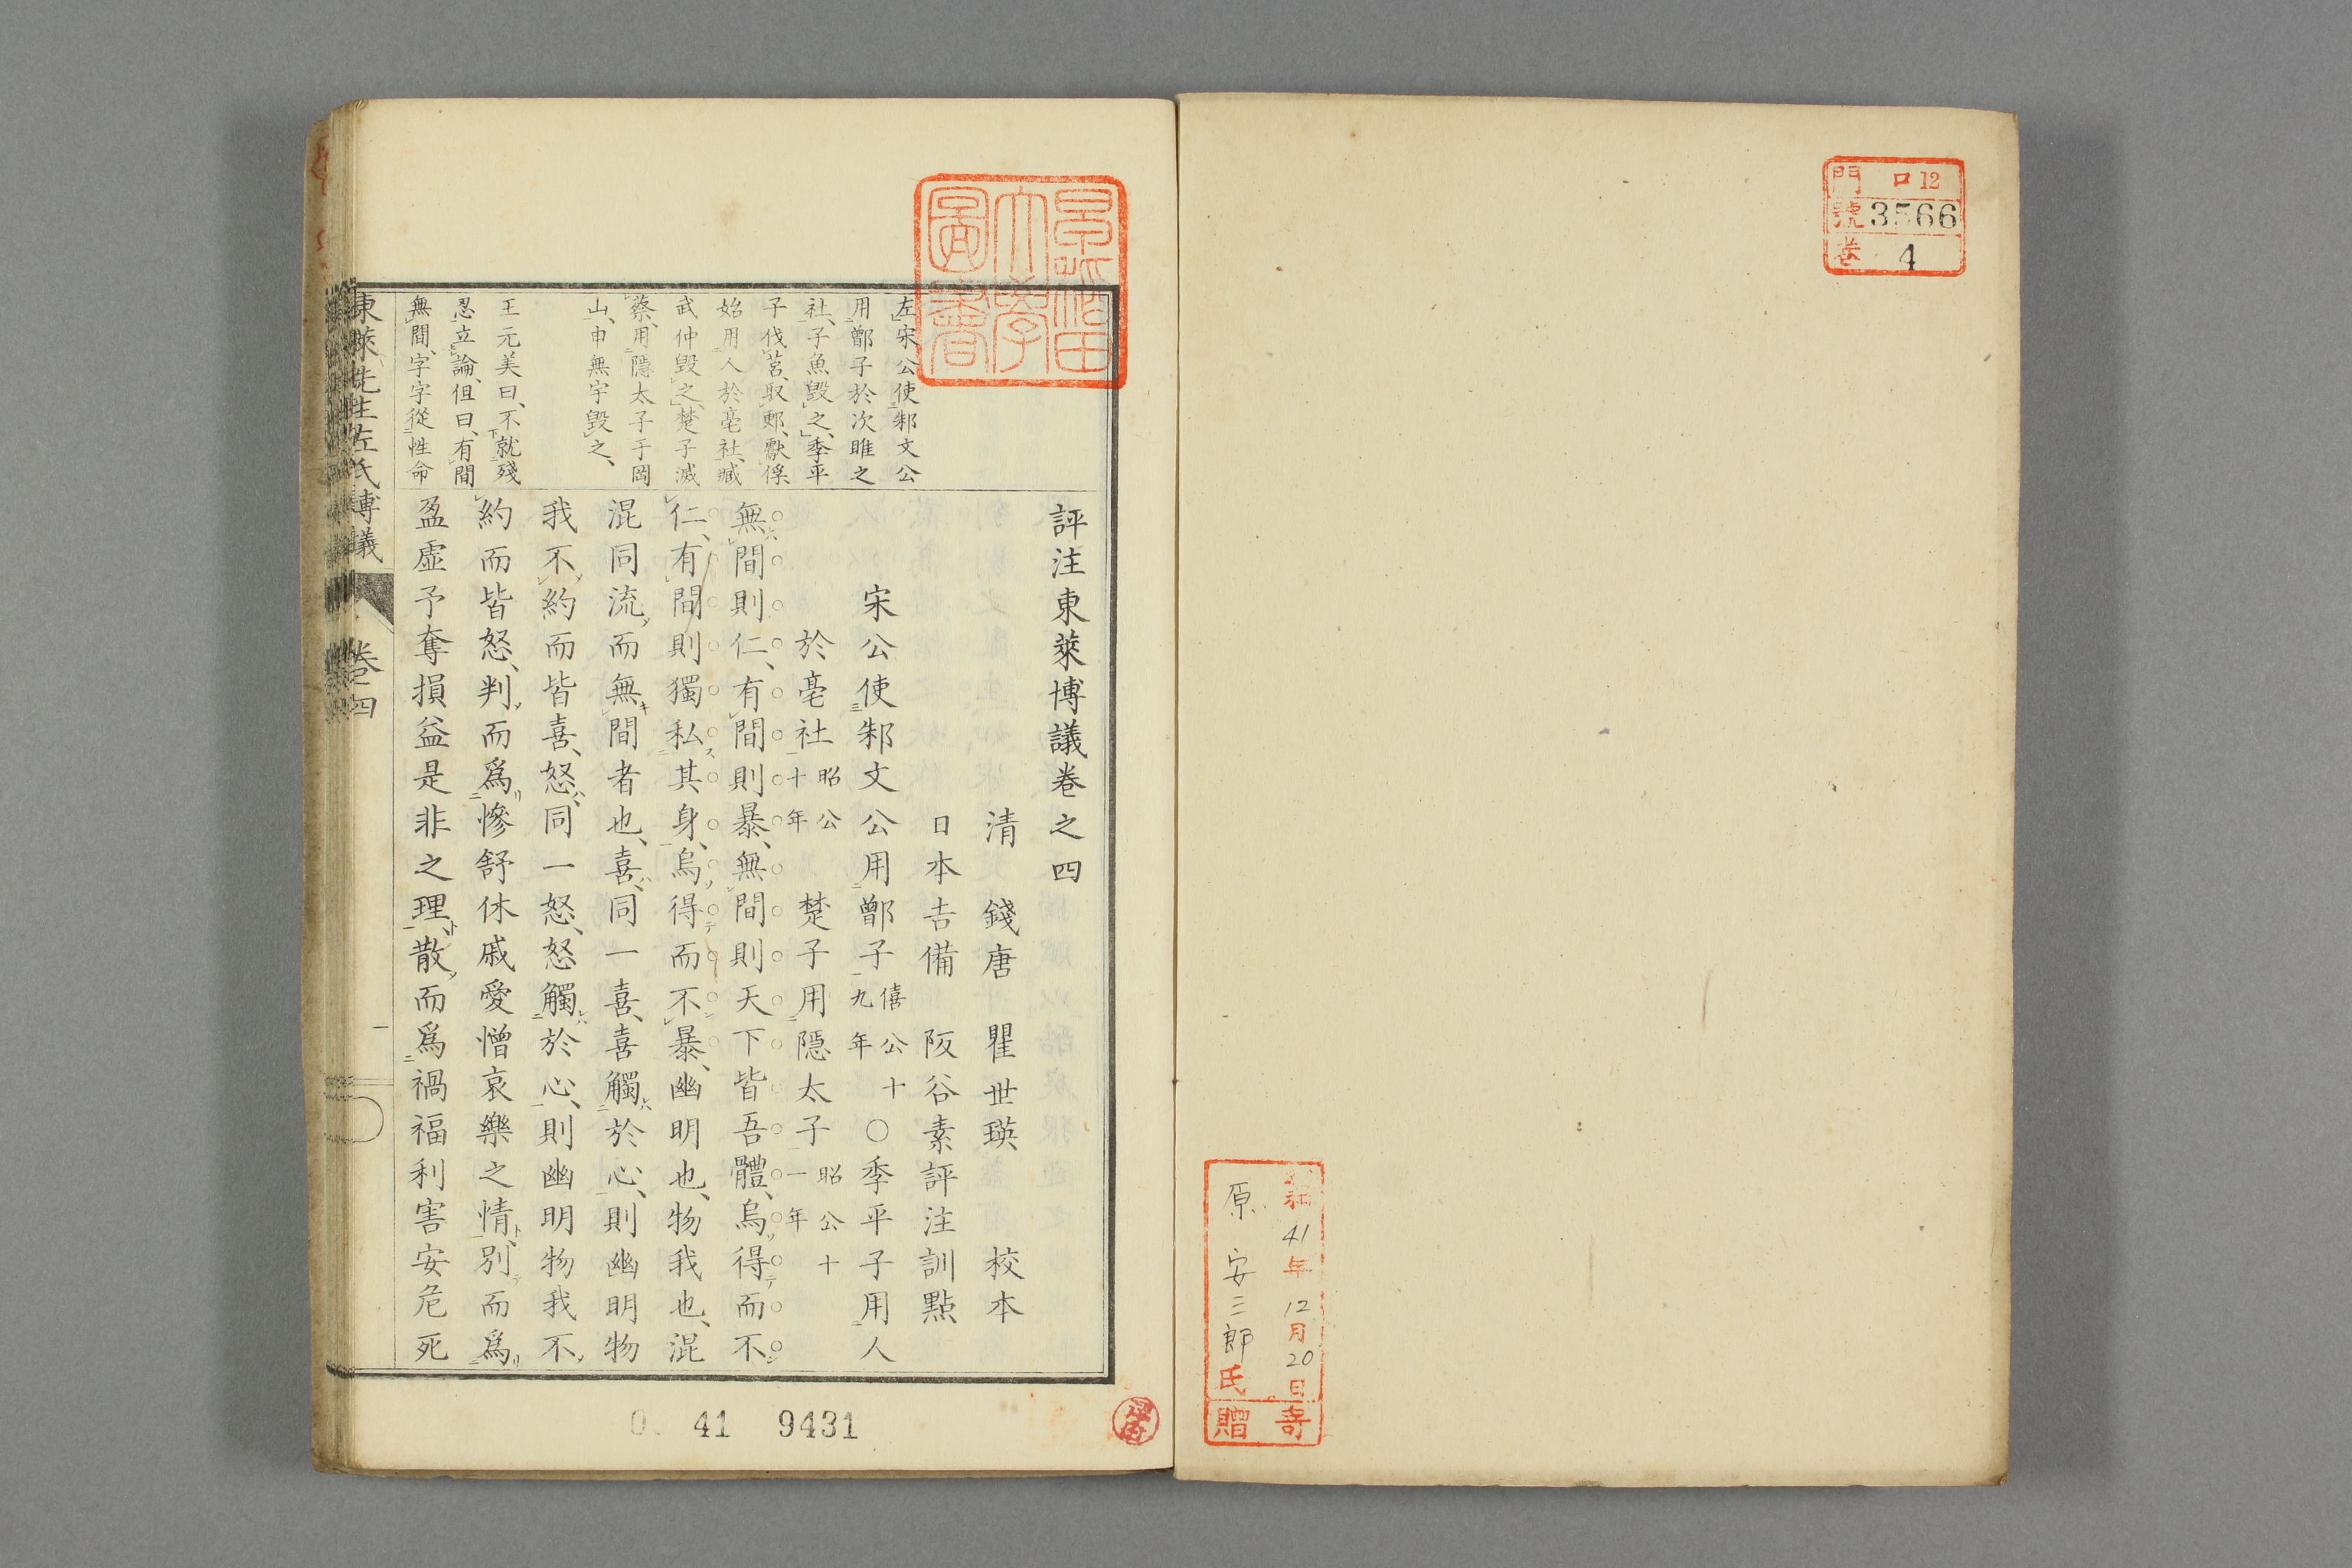 門 ロ12
號 3566
卷 4
昭和41年12月20日
原 安三郎氏
寄贈
早稲田大學圖書
評注東萊博議卷之四
清 錢唐 瞿世瑛 校本
日本吉備 阪谷素評注訓點
宋公使邾文公用鄫子僖公十九年○季平子用人
於亳社昭公十年 楚子用隱太子昭公十一年
無間則仁、有間則暴、無間則天下皆吾體、烏得而不
仁、有間則獨私其身、烏得而不暴、幽明也、物我也、混
混同流、而無間者也、喜同一喜、喜觸於心、則幽明物
我不約而皆喜、怒同一怒、怒觸於心、則幽明物我不
約而皆怒、判而爲慘舒休戚愛憎哀樂之情、別而爲
盈虛予奪損益是非之理、散而爲禍福利害安危死
左宋公使邾文公
用鄫子於次睢之
社、子魚毀之、季平
子伐莒、取郠、獻俘
始用人於亳社、臧
武仲毀之、楚子滅
蔡、用隱太子于岡
山、申無宇毀之、
王元美曰、不就殘
忍立論、但曰、有間
無間、字字從性命
東萊先生左氏博議 卷四 一
41 9431